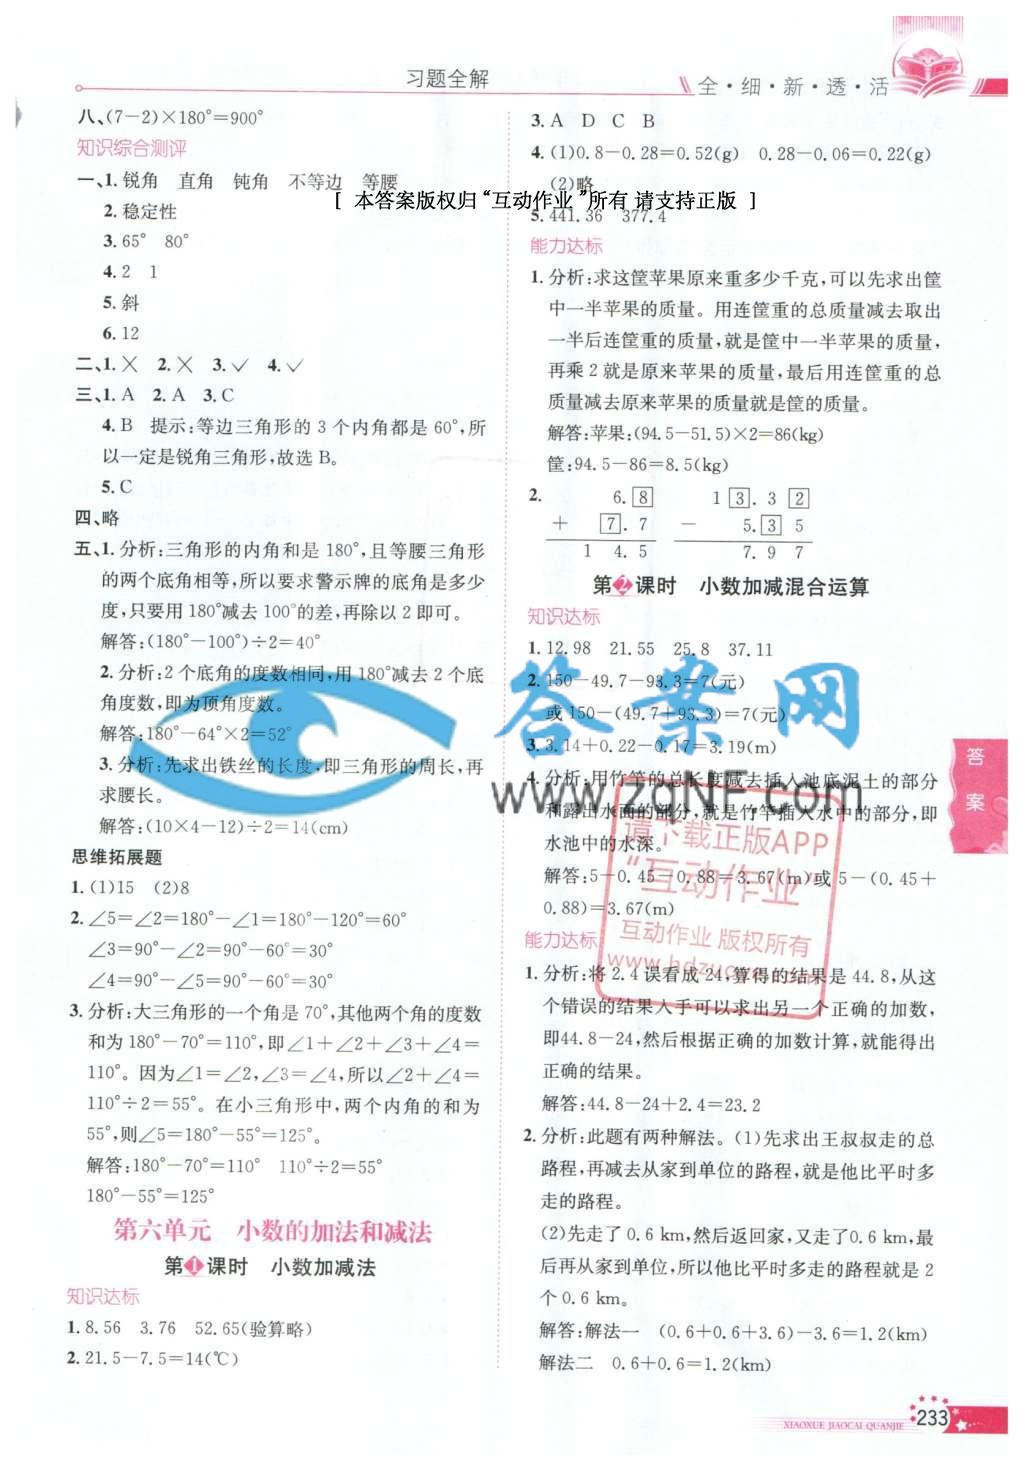 习题全解
全·细·新·透·活
八、(7-2)×180°=900°
知识综合测评
一、1. 锐角 直角 钝角 不等边 等腰
2. 稳定性
3. 65° 80°
4. 2 1
5. 斜
6. 12
二、1. × 2. × 3. ✓ 4. ✓
三、1. A 2. A 3. C
4. B 提示:等边三角形的 3 个内角都是 60°,所
以一定是锐角三角形,故选 B。
5. C
四、略
五、1. 分析:三角形的内角和是 180°,且等腰三角形
的两个底角相等,所以要求警示牌的底角是多少
度,只要用 180°减去 100°的差,再除以 2 即可。
解答:(180°-100°)÷2=40°
2. 分析:2 个底角的度数相同,用 180°减去 2 个底
角度数,即为顶角度数。
解答:180°-64°×2=52°
3. 分析:先求出铁丝的长度,即三角形的周长,再
求腰长。
解答:(10×4-12)÷2=14(cm)
思维拓展题
1. (1)15 (2)8
2. ∠5=∠2=180°-∠1=180°-120°=60°
∠3=90°-∠2=90°-60°=30°
∠4=90°-∠5=90°-60°=30°
3. 分析:大三角形的一个角是 70°,其他两个角的度数
和为 180°-70°=110°,即∠1+∠2+∠3+∠4=
110°。因为∠1=∠2,∠3=∠4,所以∠2+∠4=
110°÷2=55°。在小三角形中,两个内角的和为
55°,则∠5=180°-55°=125°。
解答:180°-70°=110° 110°÷2=55°
180°-55°=125°
第六单元 小数的加法和减法
第1课时 小数加减法
知识达标
1. 8.56 3.76 52.65(验算略)
2. 21.5-7.5=14(℃)
3. A D C B
4. (1)0.8-0.28=0.52(g) 0.28-0.06=0.22(g)
(2)略
[ 本答案版权归 “互动作业 ”所有 请支持正版 ]
5. 441.36 377.4
能力达标
1. 分析:求这筐苹果原来重多少千克,可以先求出筐
中一半苹果的质量。用连筐重的总质量减去取出
一半后连筐重的质量,就是筐中一半苹果的质量,
再乘 2 就是原来苹果的质量,最后用连筐重的总
质量减去原来苹果的质量就是筐的质量。
解答:苹果:(94.5-51.5)×2=86(kg)
筐:94.5-86=8.5(kg)
2. 6. 8 1 3 . 3 2
+ 7 . 7 - 5. 3 5
1 4. 5 7. 9 7
第2课时 小数加减混合运算
知识达标
1. 12.98 21.55 25.8 37.11
2. 150-49.7-93.3=7(元)
或 150-(49.7+93.3)=7(元)
3. 3.14+0.22-0.17=3.19(m)
4. 分析:用竹竿的总长度减去插入池底泥土的部分
和露出水面的部分,就是竹竿插入水中的部分,即
水池中的水深。
解答:5-0.45-0.88=3.67(m)或 5-(0.45+
0.88)=3.67(m)
能力达标
1. 分析:将 2.4 误看成 24,算得的结果是 44.8,从这
个错误的结果入手可以求出另一个正确的加数,
即44.8-24,然后根据正确的加数计算,就能得出
正确的结果。
解答:44.8-24+2.4=23.2
2. 分析:此题有两种解法。(1)先求出王叔叔走的总
路程,再减去从家到单位的路程,就是他比平时多
走的路程。
(2)先走了 0.6 km,然后返回家,又走了 0.6 km,最
后再从家到单位,所以他比平时多走的路程就是 2
个 0.6 km。
解答:解法一 (0.6+0.6+3.6)-3.6=1.2(km)
解法二 0.6+0.6=1.2(km)
答案网
www.zqnf.com
请下载正版APP
“互动作业”
互动作业 版权所有
答
案
233
XIAOXUE JIAOCAI QUANJIE